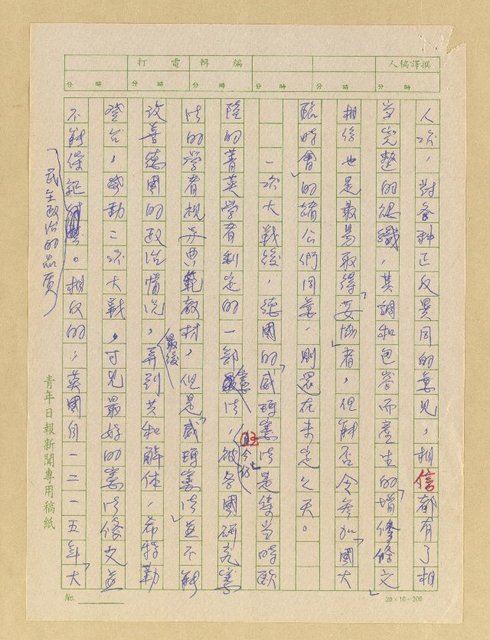 人稿譯撰
輯編
電打
分 時 分 時 分 時 分 時
人次，對各種正反異同的意見，相信都有了相
當完整的認識，其調和包容而產生的「增修條文」
相信也是最易取得「妥協」者，但能否令參加「國大
臨時會」的諸公們同意，則署在未定之天。
一次大戰後，德國的「威瑪憲法」是集當時歐
陸的菁英學者制定的一部憲法，至今仍被各國研究憲
法的學者視為典範教材，但是「威瑪憲法」並不能
改善德國的政治情況，最後弄到共和解體，希特勒
登台，發動二次大戰，可見最好的憲法條文並
不能保証「民主政治的品質」。相反的，英國自一二一五年「大
青年日報新聞專用稿紙
No.
20×10=200